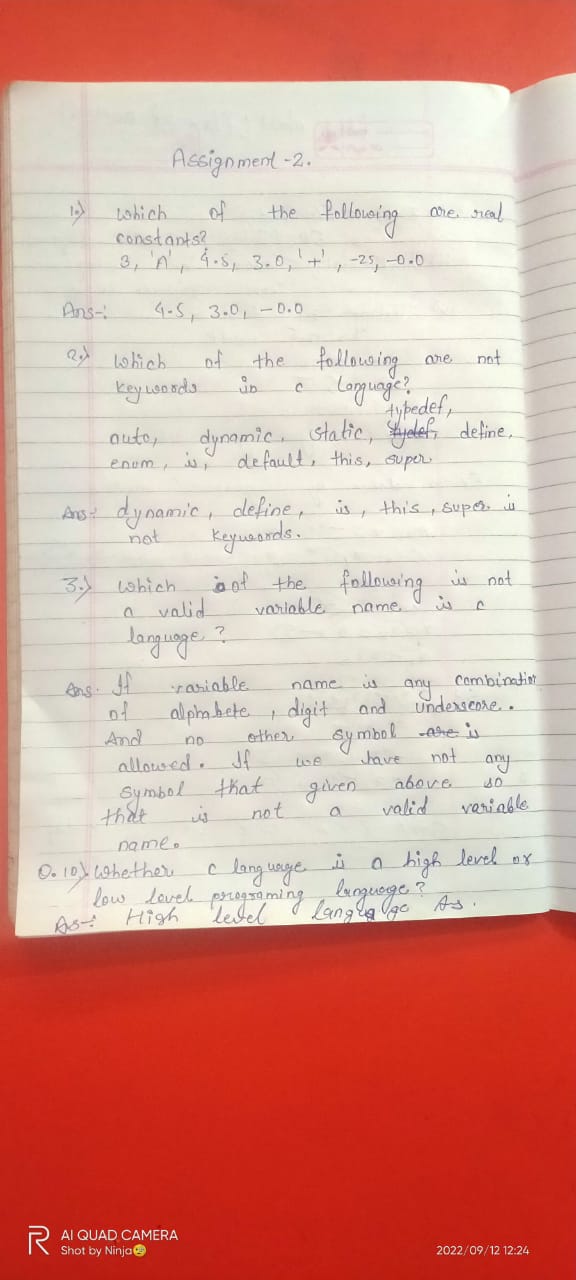 Assignment -2.
1.) which of the following are real
constants?
3, 'A', 4.5, 3.0, '+', -25, -0.0
Ans-: 4.5, 3.0, -0.0
2.) which of the following are not
keywoods in c language?
typedef,
auto, dynamic, static, define,
enum, is, default, this, super.
Ans-: dynamic, define, is, this, super is
not keywoords.
3.) which of the following is not
a valid variable name is c
language?
Ans. If variable name is any combination
of alphabete, digit and underscore.
And no other symbol are is
allowed. If we have not any
symbol that given above so
that is not a valid variable
name.
Q.10) Whether c language is a high level or
low level programing language?
As-: High level language As.
AI QUAD CAMERA
Shot by Ninja😉
2022/09/12 12:24